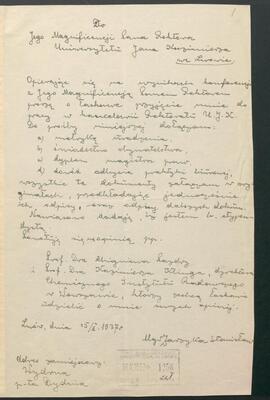 Do
Jego Magnificencji Pana Rektora
Uniwersytetu Jana Kazimierza
we Lwowie.
Opierając się na wynikach konferencji
z Jego Magnificencją Panem Rektorem
proszę o łaskawe przyjęcie mnie do
pracy w kancelarii Rektoratu U.J.K.
Do prośby niniejszej dołączam:
a) metrykę urodzenia.
b) świadectwo obywatelstwa.
c) dyplom magistra praw.
d) dowód odbycia praktyki biurowej,
wszystkie te dokumenty załączam w ory-
ginałach, przedkładając jednocześnie
ich odpisy, oraz odpisy dalszych dokum.
Nawiasowo dodaję, iż jestem b. stypen-
dystą
pp.
Prof. Dra Zbigniewa
i Prof. Dra Kazimierza Klinga, dyrektora
Chemicznego Instytutu Badawczego
w Warszawie, którzy zechcą łaskawie
udzielić o mnie swych opinij.
Lwów, dnia 15/X. 1937 r.
Mgr Jarzyka Stanisław
Adres zamiejscowy:
Wydrna
p-ta Wydrna
1256
zał.